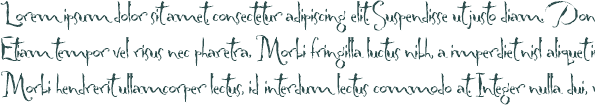 Lorem ipsum dolor sit amet, consectetur adipiscing elit. Suspendisse ut justo diam. Don
Etiam tempor vel risus nec pharetra. Morbi fringilla luctus nibh, a imperdiet nisl aliquet i
Morbi hendrerit ullamcorper lectus, id interdum lectus commodo at. Integer nulla dui, v